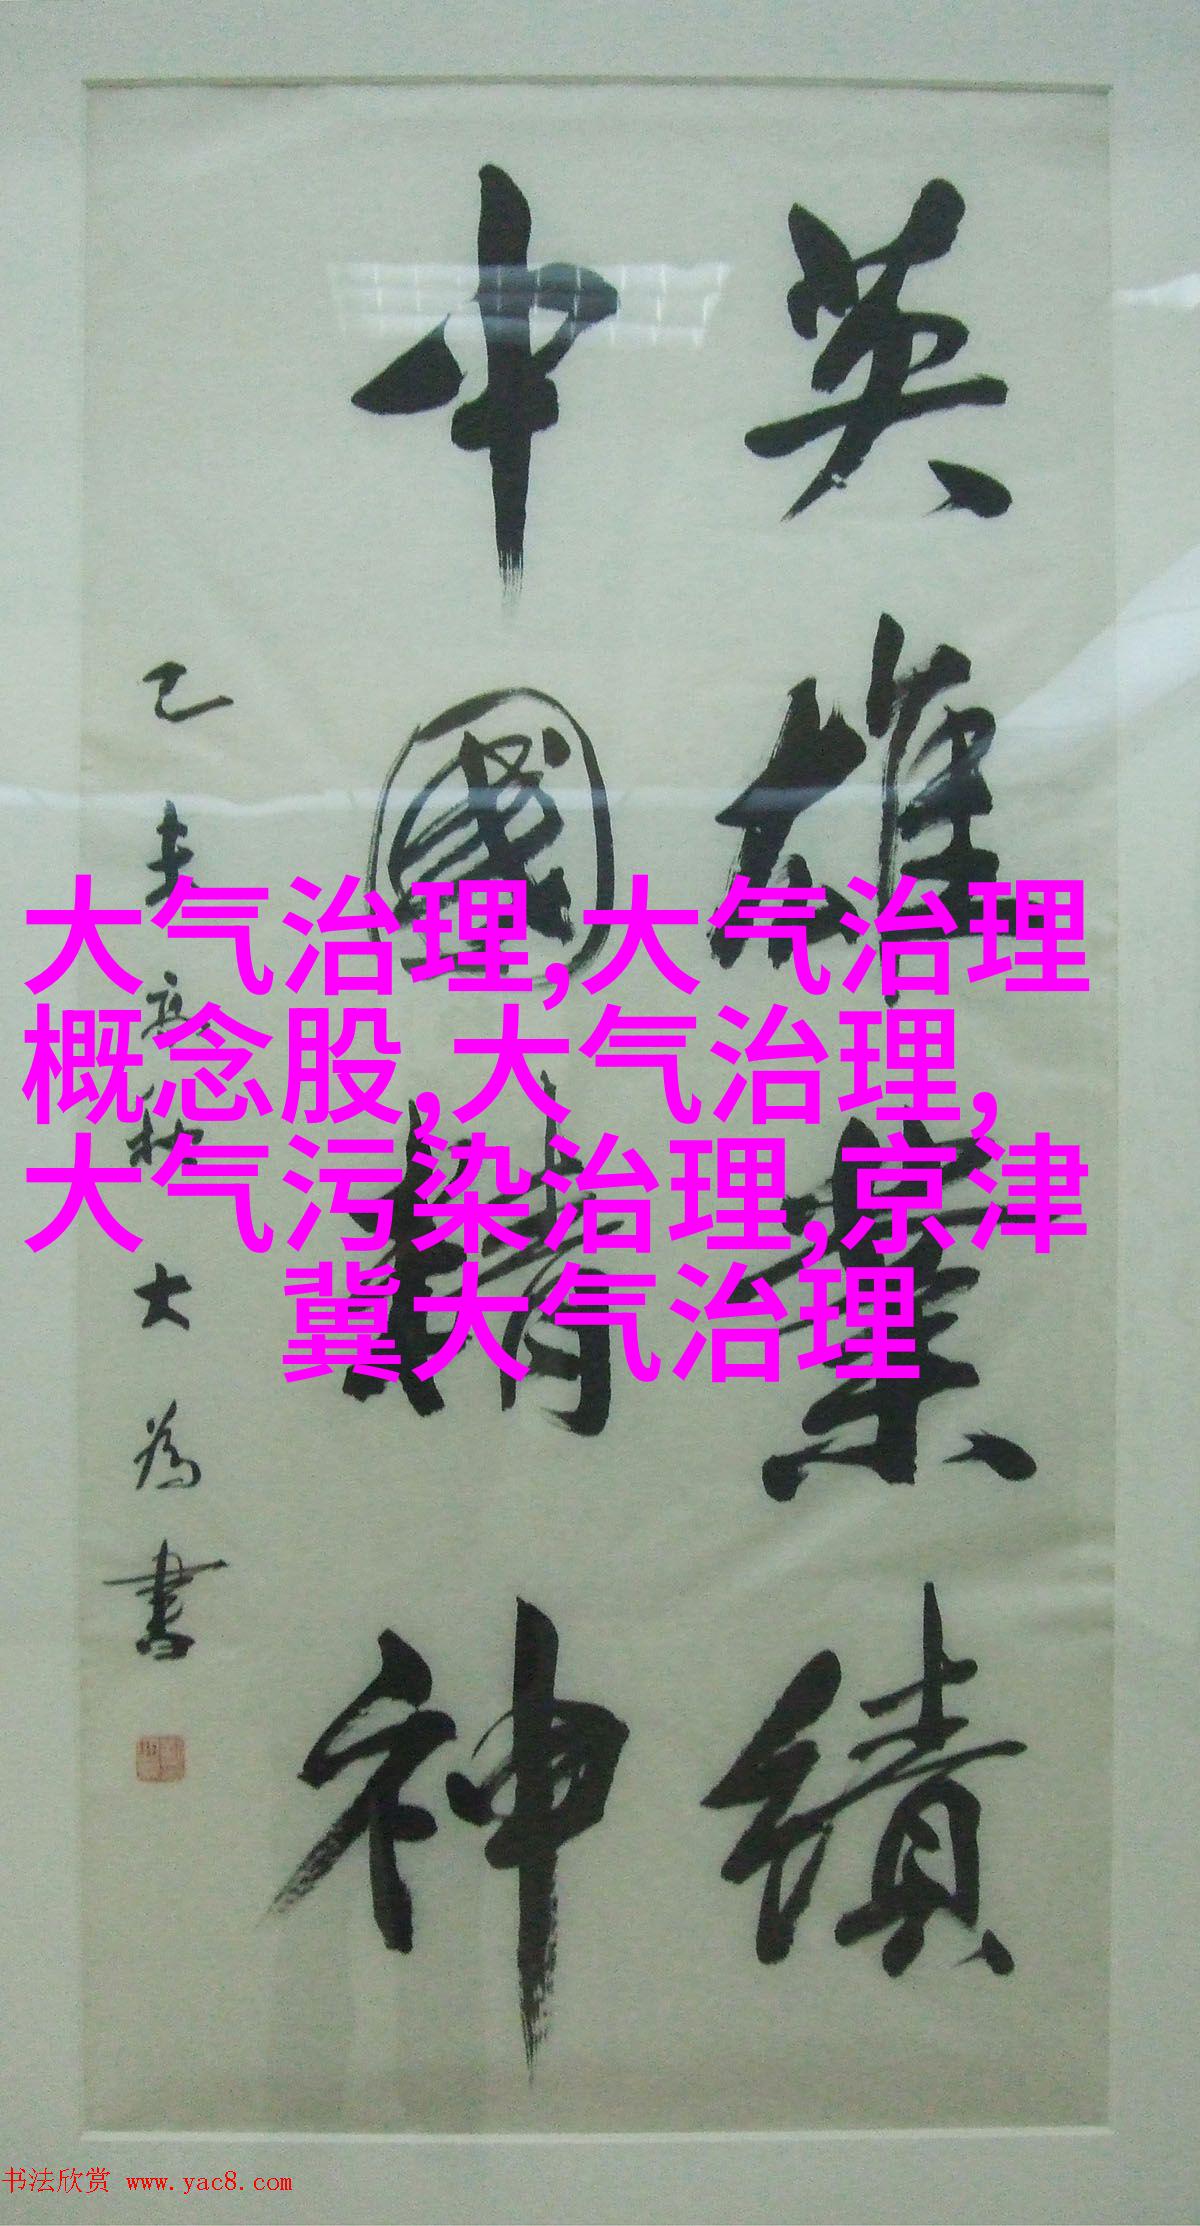 英雄業績
中國精神
己未高秋大為書
大气治理,大气治理
概念股,大气治理,
大气污染治理,京津
冀大气治理
书法欣赏 www.yac8.com